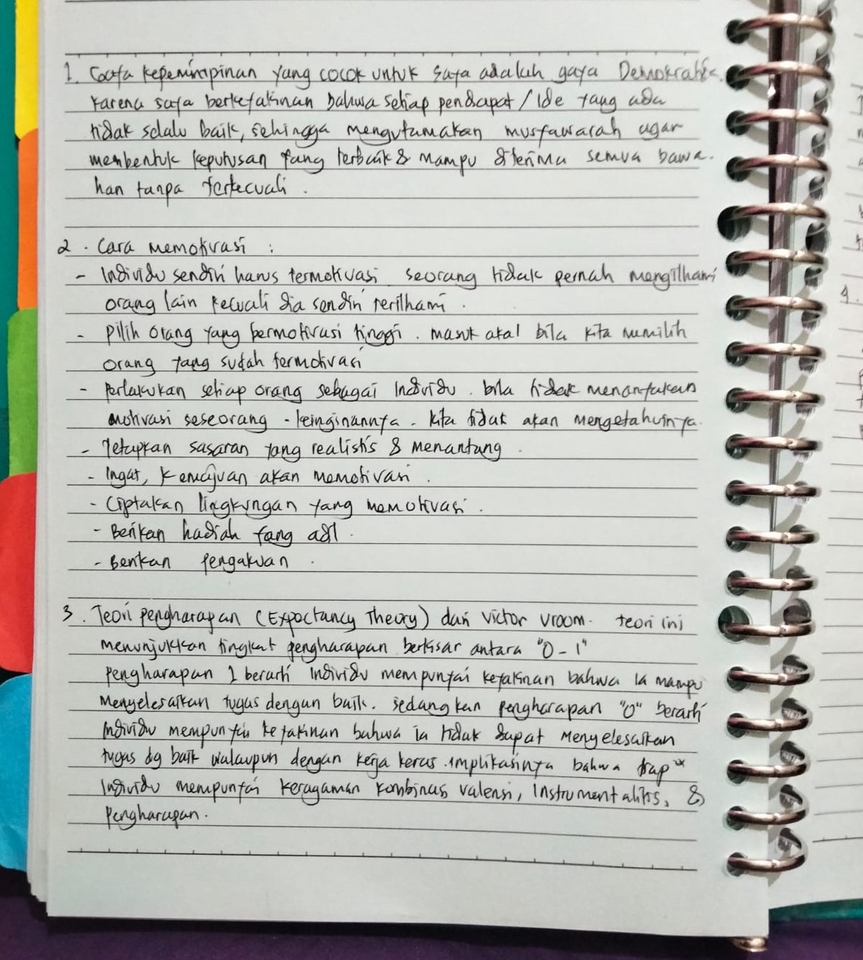 1. Gaya kepemimpinan yang cocok untuk saya adalah gaya Demokratis,
karena saya berkeyakinan bahwa setiap pendapat / ide yang ada
tidak selalu baik, sehingga mengutamakan musyawarah agar
membentuk keputusan yang terbaik & mampu diterima semua bawa-
han tanpa terkecuali.
2. Cara memotivasi :
- Individu sendiri harus termotivasi. seorang tidak pernah mengilhami
orang lain kecuali dia sendiri terilhami.
- Pilih orang yang bermotivasi tinggi. masuk akal bila kita memilih
orang yang sudah termotivasi
- Perlakukan setiap orang sebagai individu. bila tidak menanyakan
motivasi seseorang - keinginannya. kita tidak akan mengetahuinya.
- Tetapkan sasaran yang realistis & menantang.
- Ingat, kemajuan akan memotivasi.
- Ciptakan lingkungan yang memotivasi.
- Berikan hadiah yang adil.
- Berikan pengakuan.
3. Teori pengharapan (Expectancy Theory) dari Victor Vroom. teori ini
menunjukkan tingkat pengharapan berkisar antara "0 - 1"
pengharapan 1 berarti individu mempunyai keyakinan bahwa ia mampu
menyelesaikan tugas dengan baik. sedangkan pengharapan "0" berarti
individu mempunyai keyakinan bahwa ia tidak dapat menyelesaikan
tugas dg baik walaupun dengan kerja keras. implikasinya bahwa tiap"
individu mempunyai keragaman kombinasi valensi, instrumentalitis, &
pengharapan.